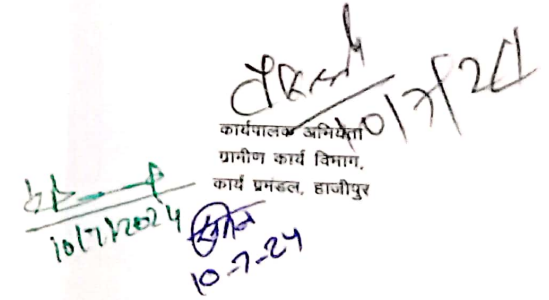 10/7/24
कार्यपालक अभियंता
ग्रामीण कार्य विभाग,
कार्य प्रमंडल, हाजीपुर
10/7/2024
10-7-24